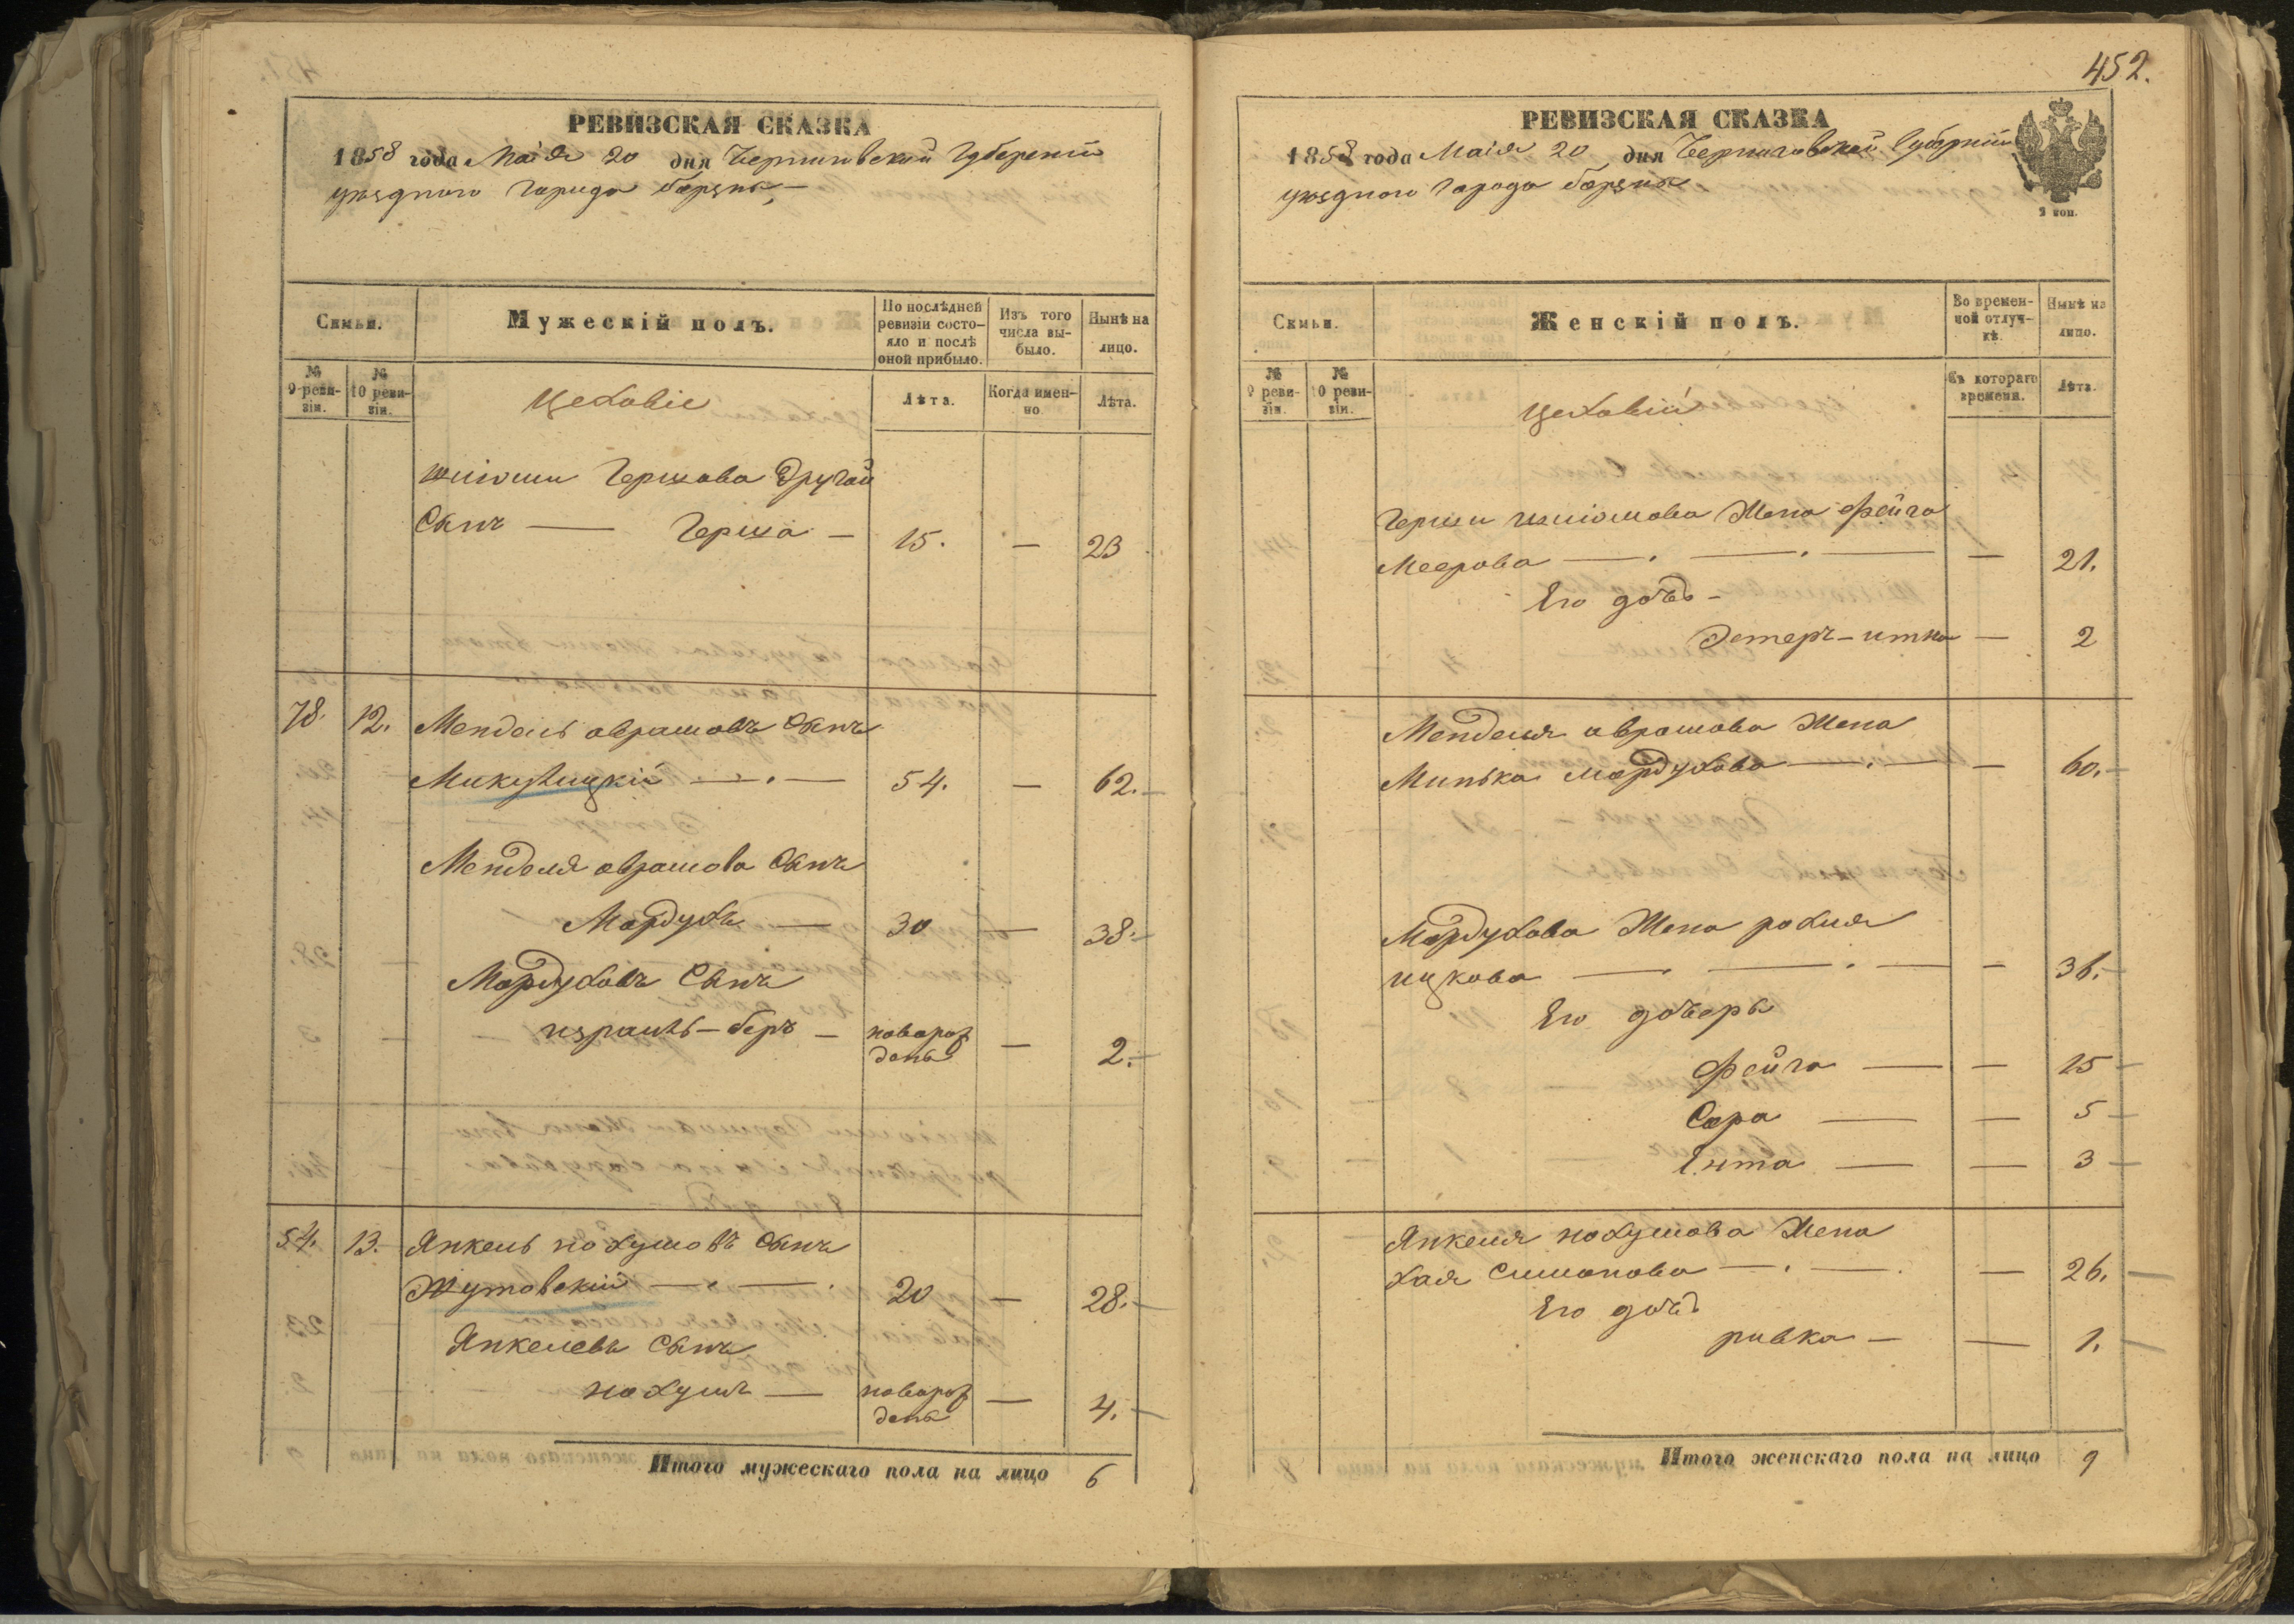 РЕВИЗСКАЯ СКАЗКА
1858 года Маія 20 дня Черниговской Губерніи
уѣзднаго города борзны
Семьи.
Мужескій полъ.
По послѣдней ревизіи состояло и послѣ оной прибыло.
Изъ того числа выбыло.
Нынѣ на лицо.
№ 9 ревизіи.
№ 10 ревизіи.
Цеховіе
Лѣта.
Когда именно
Лѣта.
Шліоми Гершова другой
Сынъ — Герша — 15. — 23
78. 12. Мендель аврамовъ Сынъ
Микулицкій — 54. — 62.
Менделя аврамова Сынъ
Мордухъ — 30 — 38.
Мордуховъ Сынъ
израиль-беръ — новорожденъ — 2.
54. 13. Янкель нохумовъ Сынъ
Жутовскій — 20 — 28.
Янкелевъ Сынъ
нохумъ — новорожденъ — 4.
Итого мужескаго пола на лицо 6
452.
РЕВИЗСКАЯ СКАЗКА
1858 года Маія 20 дня Черниговской Губерніи
уѣзднаго города борзны
2 коп.
Семьи.
Женскій полъ.
Во временной отлучкѣ.
Нынѣ на лицо.
№ 9 ревизіи.
№ 10 ревизіи.
Цеховіи
Съ котораго времени.
Лѣта.
Герши шліомова Жена фейга
Меерова — — 21.
Его дочь —
Этеръ-итка — 2
Менделя аврамова Жена
Минька мордухова — — 60.
Мордухова Жена рохля
ицкова — — 36.
Его дочери
фейга — — 15
Сора — — 5
Ента — — 3
Янкеля нохумова Жена
хая Симонова — — 26.
Его дочь
ривка — — 1.
Итого женскаго пола на лицо 9